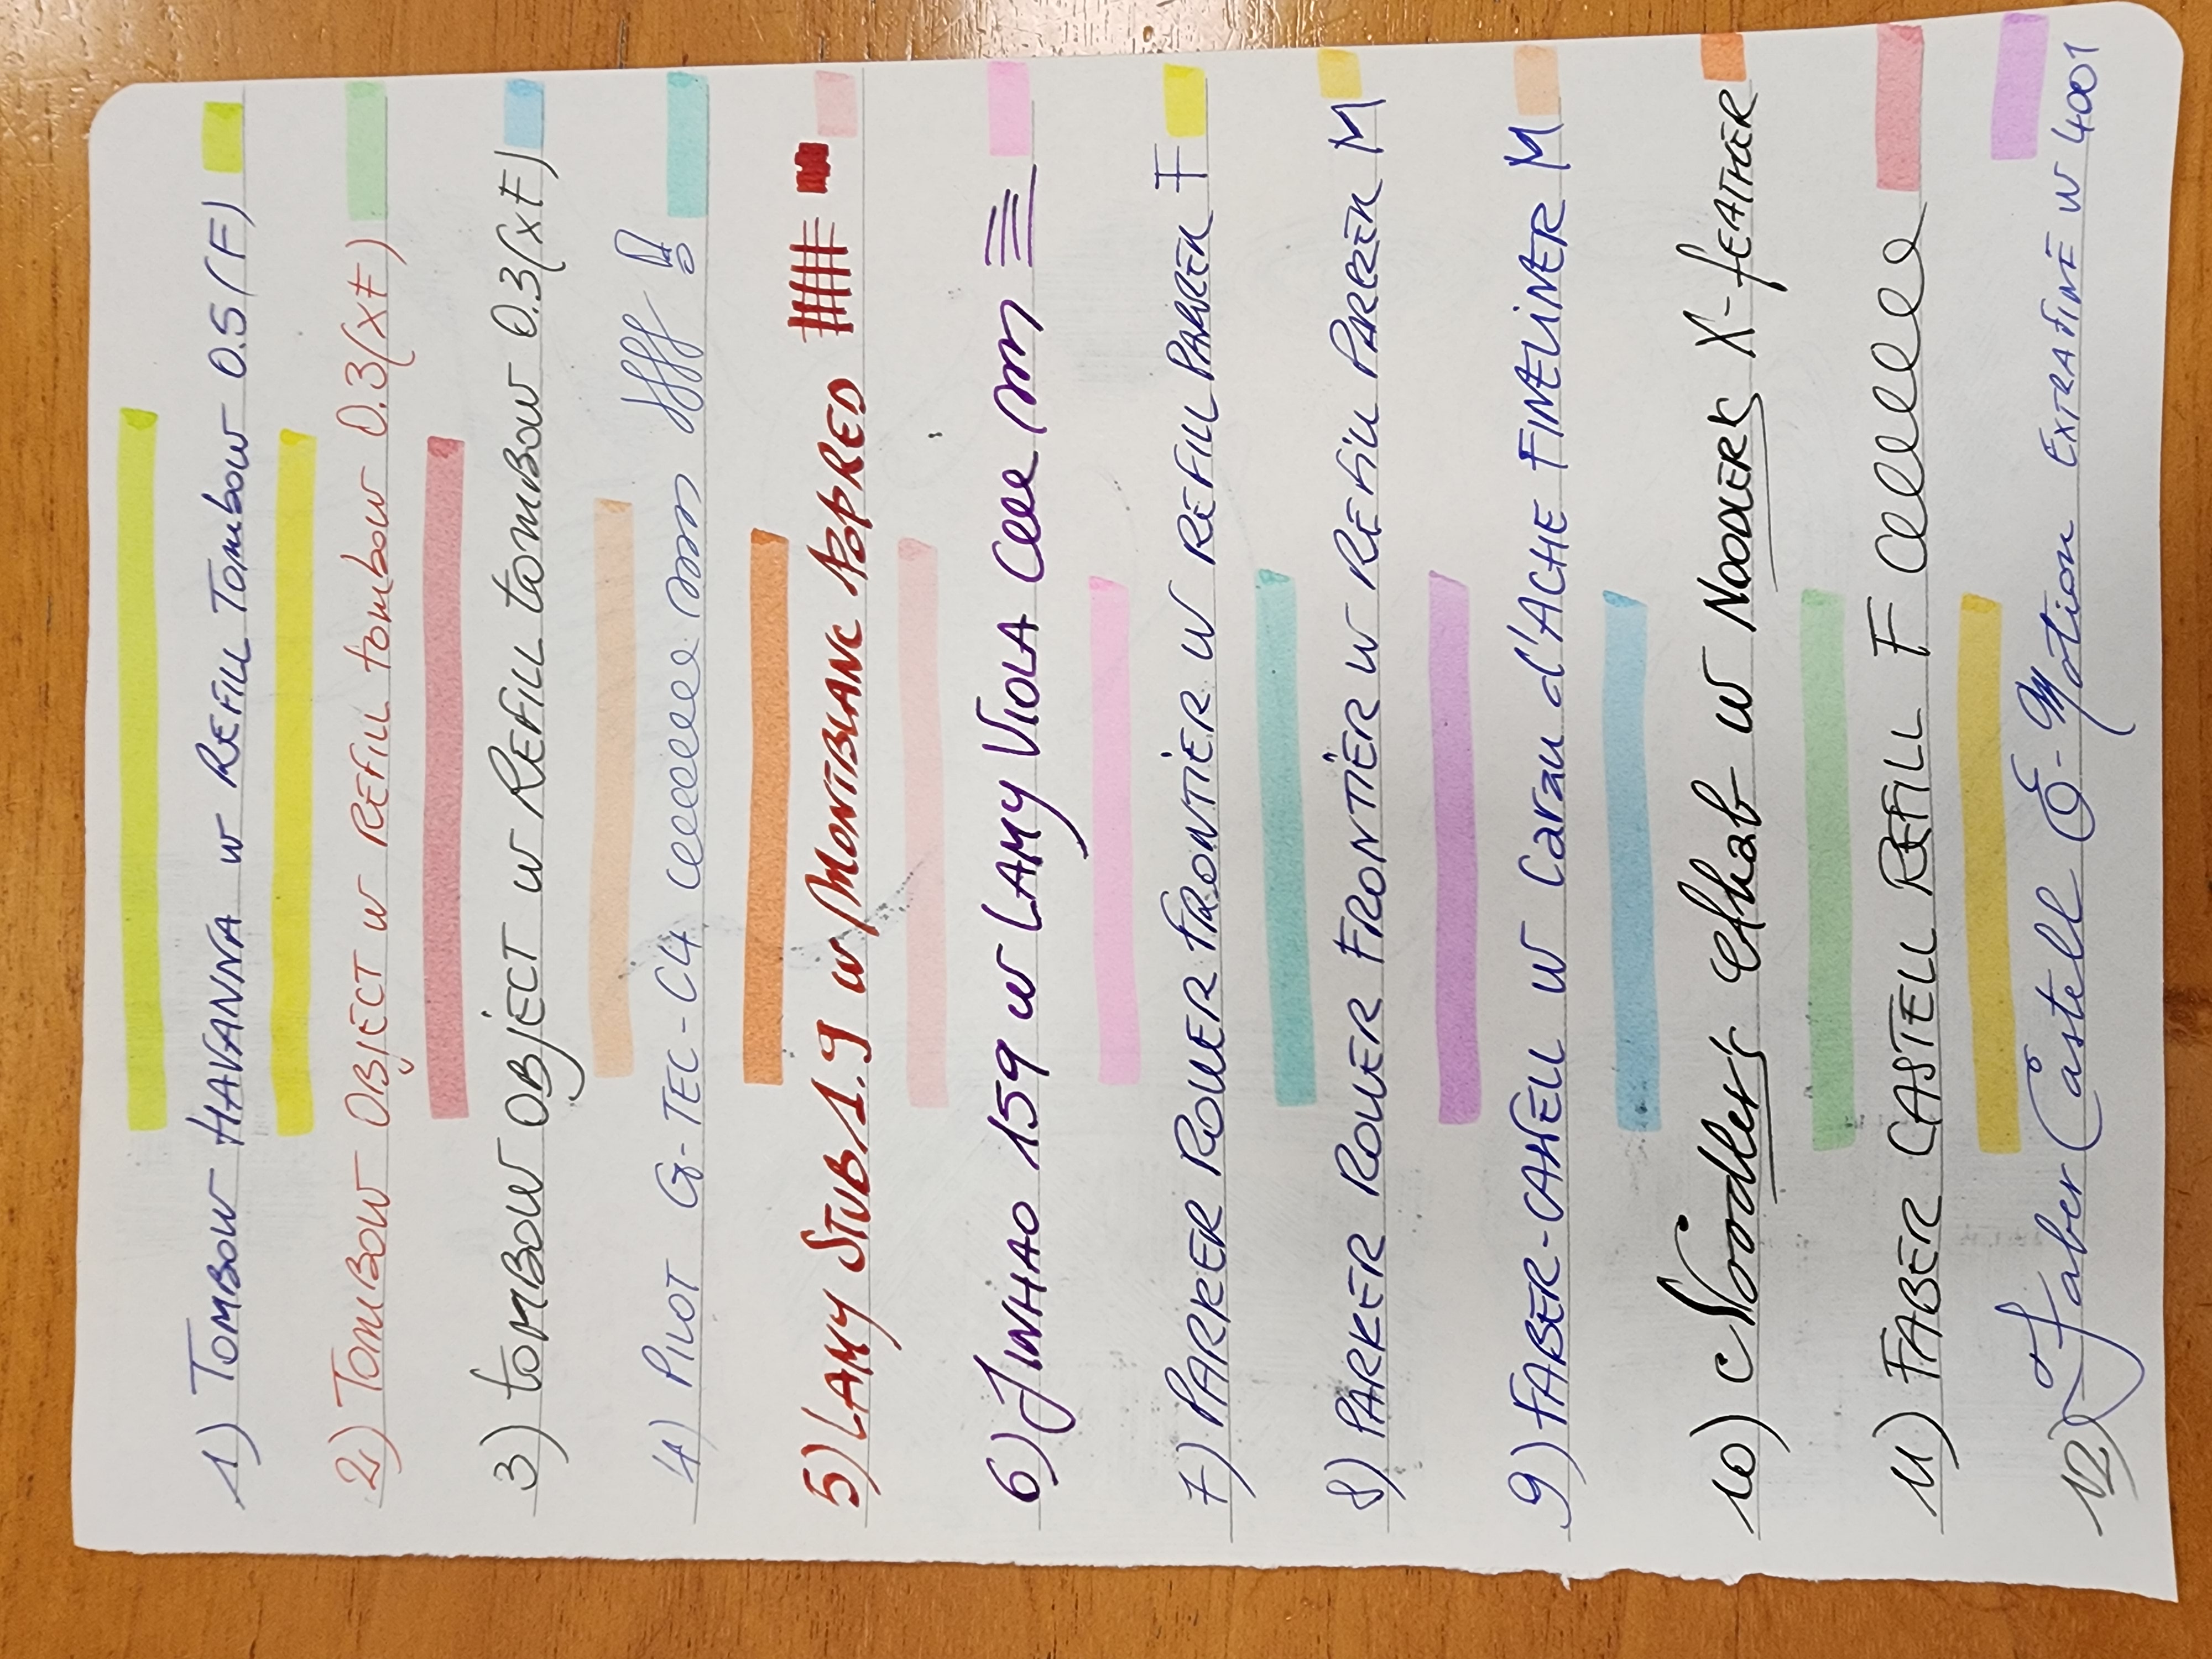 1) TOMBOW HAVANNA w REFILL TOMBOW 0.5 (F)
2) TOMBOW OBJECT w REFILL tombow 0.3 (XF)
3) tOMBOW OBJECT w REFILL tOMBOW 0.3 (XF)
4) PILOT G-TEC-C4
5) LAMY STUB 1.9 w MONTBLANC POPRED
6) JINHAO 159 w LAMY VIOLA
7) PARKER ROLLER FRONTIER w REFILL PARKER F
8) PARKER ROLLER FRONTIER w REFILL PARKER M
9) FABER-CASTELL w Caran d'ACHE FINELINER M
10) Noodler's Ahab w NOODLERS X-FEATHER
11) FABER CASTELL REFILL F
12) Faber Castell E-Motion EXTRAFINE w 4001